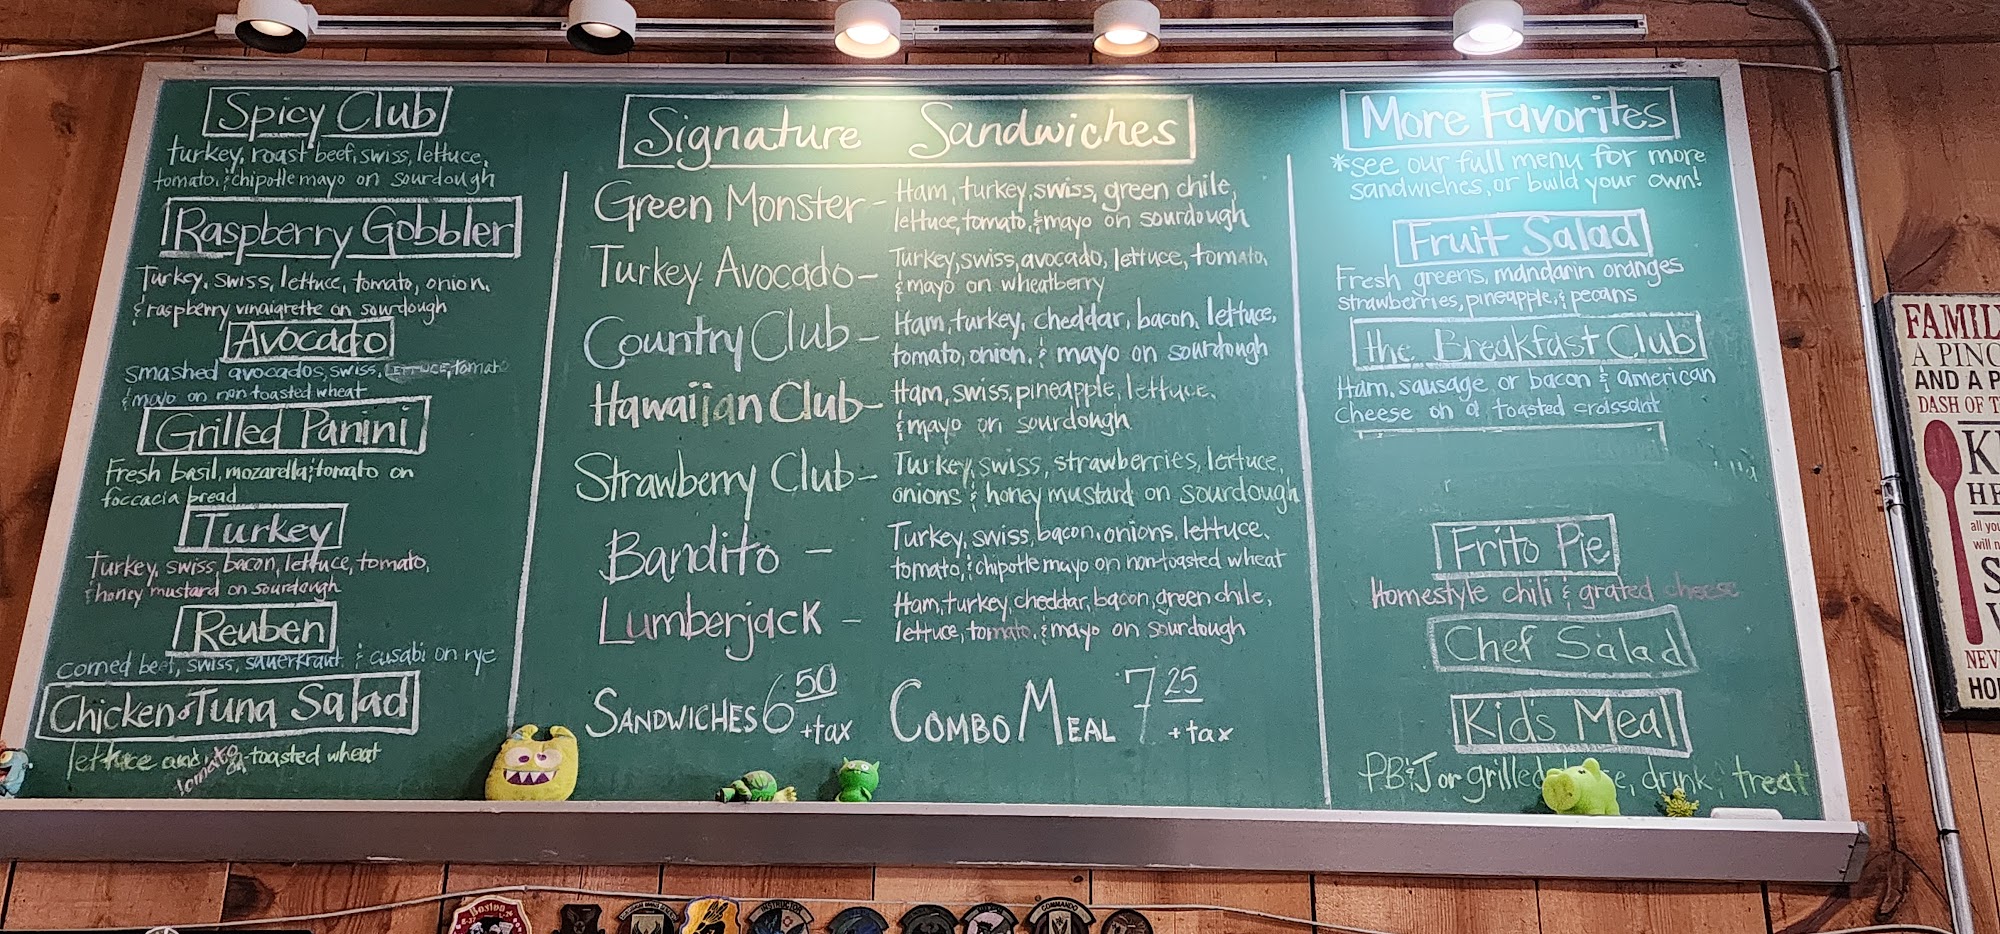 Spicy Club
turkey, roast beef, swiss, lettuce,
tomato, & chipotle mayo on sourdough
Raspberry Gobbler
Turkey, swiss, lettuce, tomato, onion,
& raspberry vinaigrette on sourdough
Avocado
smashed avocados, swiss, LETTUCE, tomato
& mayo on non-toasted wheat
Grilled Panini
Fresh basil, mozarella & tomato on
foccacia bread
Turkey
Turkey, swiss, bacon, lettuce, tomato,
& honey mustard on sourdough
Reuben
corned beef, swiss, sauerkraut & cusabi on rye
Chicken or Tuna Salad
lettuce and tomato on toasted wheat
Signature Sandwiches
Green Monster - Ham, turkey, swiss, green chile,
lettuce, tomato, & mayo on sourdough
Turkey Avocado - Turkey, swiss, avocado, lettuce, tomato,
& mayo on wheatberry
Country Club - Ham, turkey, cheddar, bacon, lettuce,
tomato, onion, & mayo on sourdough
Hawaiian Club - Ham, swiss, pineapple, lettuce,
& mayo on sourdough
Strawberry Club - Turkey, swiss, strawberries, lettuce,
onions & honey mustard on sourdough
Bandito - Turkey, swiss, bacon, onions, lettuce,
tomato, & chipotle mayo on non-toasted wheat
Lumberjack - Ham, turkey, cheddar, bacon, green chile,
lettuce, tomato, & mayo on sourdough
SANDWICHES 6 50 + tax COMBO MEAL 7 25 + tax
More Favorites
*see our full menu for more
sandwiches, or build your own!
Fruit Salad
Fresh greens, mandarin oranges
strawberries, pineapple, & pecans
the Breakfast Club
Ham, sausage or bacon & american
cheese on a toasted croissant
Frito Pie
Homestyle chili & grated cheese
Chef Salad
Kid's Meal
PB&J or grilled drink, & treat
FAMIL
A PINC
AND A P
DASH OF T
K
HE
all yo
will n
S
NEV
HO
Boston
INSTRUCTOR
COMMANDO